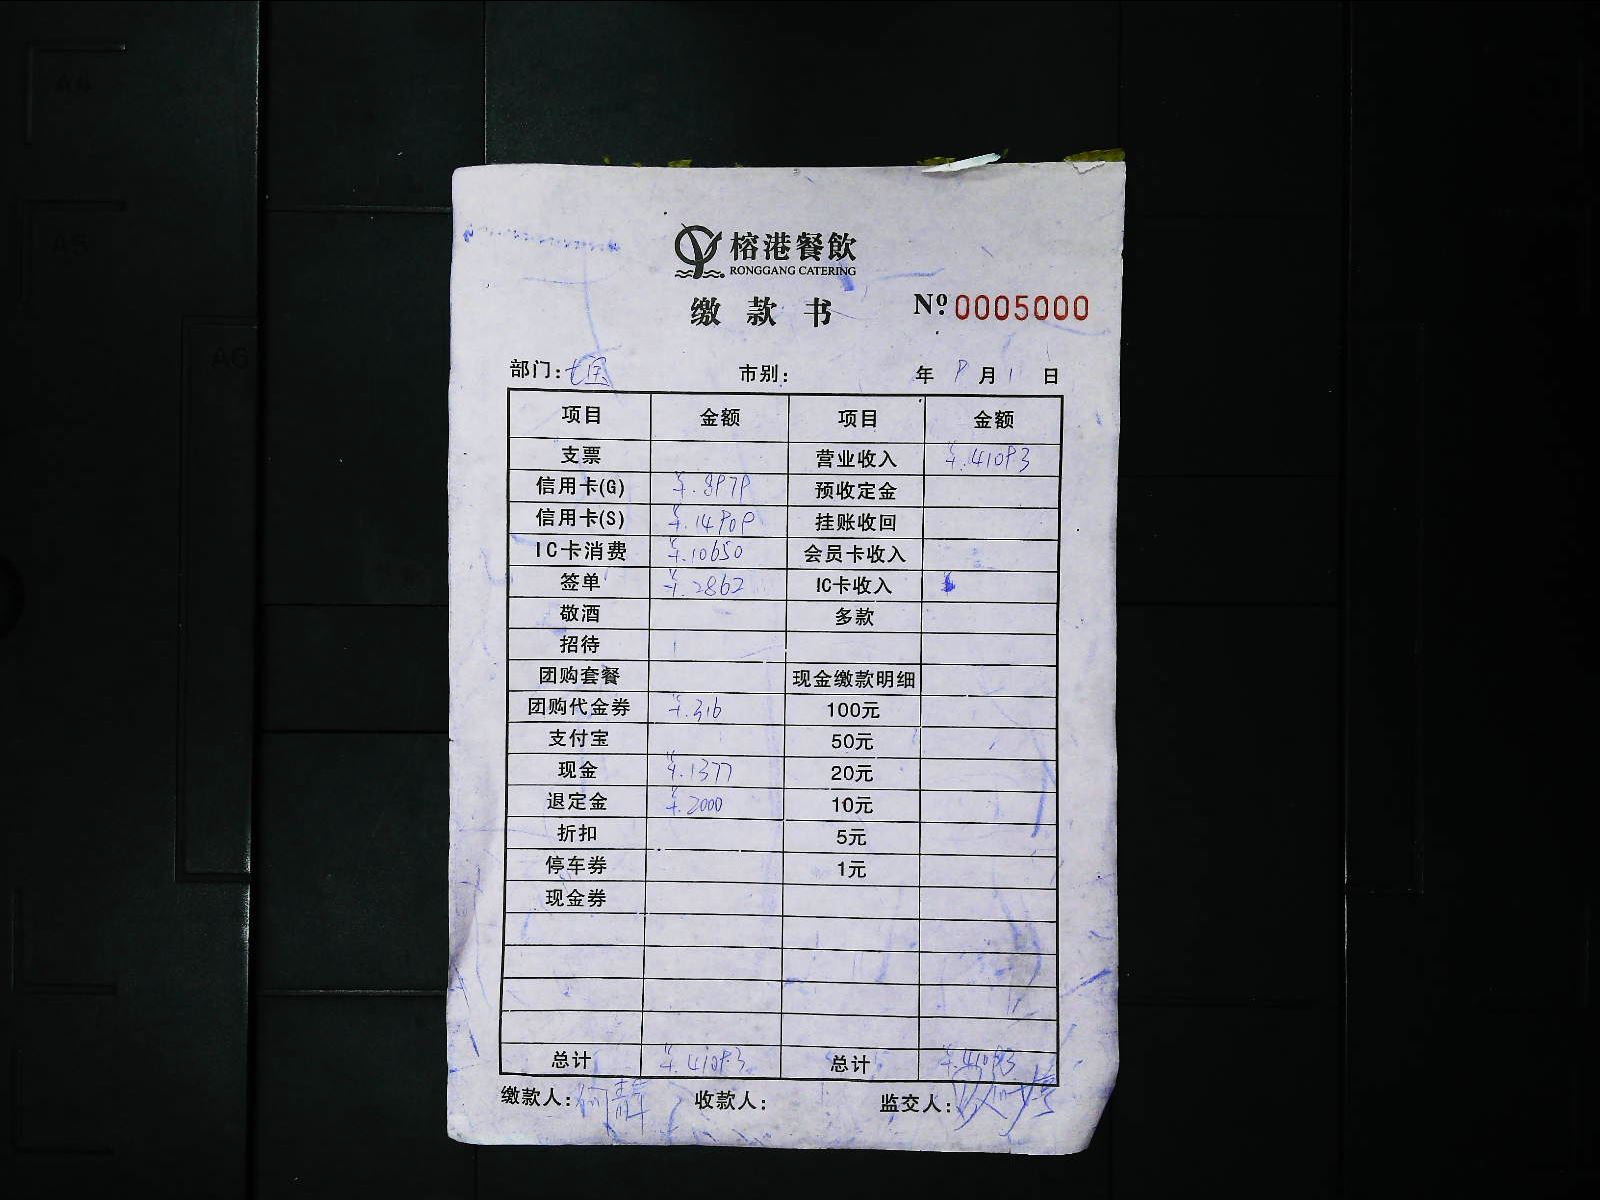 A4
A5
A6
榕港餐飲
RONGGANG CATERING
缴款书 Nº 0005000
部门: 市别: 年 9 月 1 日
项目 金额 项目 金额
支票 营业收入 ¥.41093
信用卡(G) ¥.8979 预收定金
信用卡(S) ¥.14909 挂账收回
IC卡消费 ¥.10650 会员卡收入
签单 ¥.2862 IC卡收入
敬酒 多款
招待
团购套餐 现金缴款明细
团购代金券 ¥.316 100元
支付宝 50元
现金 ¥.1377 20元
退定金 ¥.2000 10元
折扣 5元
停车券 1元
现金券
总计 ¥.41093 总计 ¥.41093
缴款人: 收款人: 监交人: